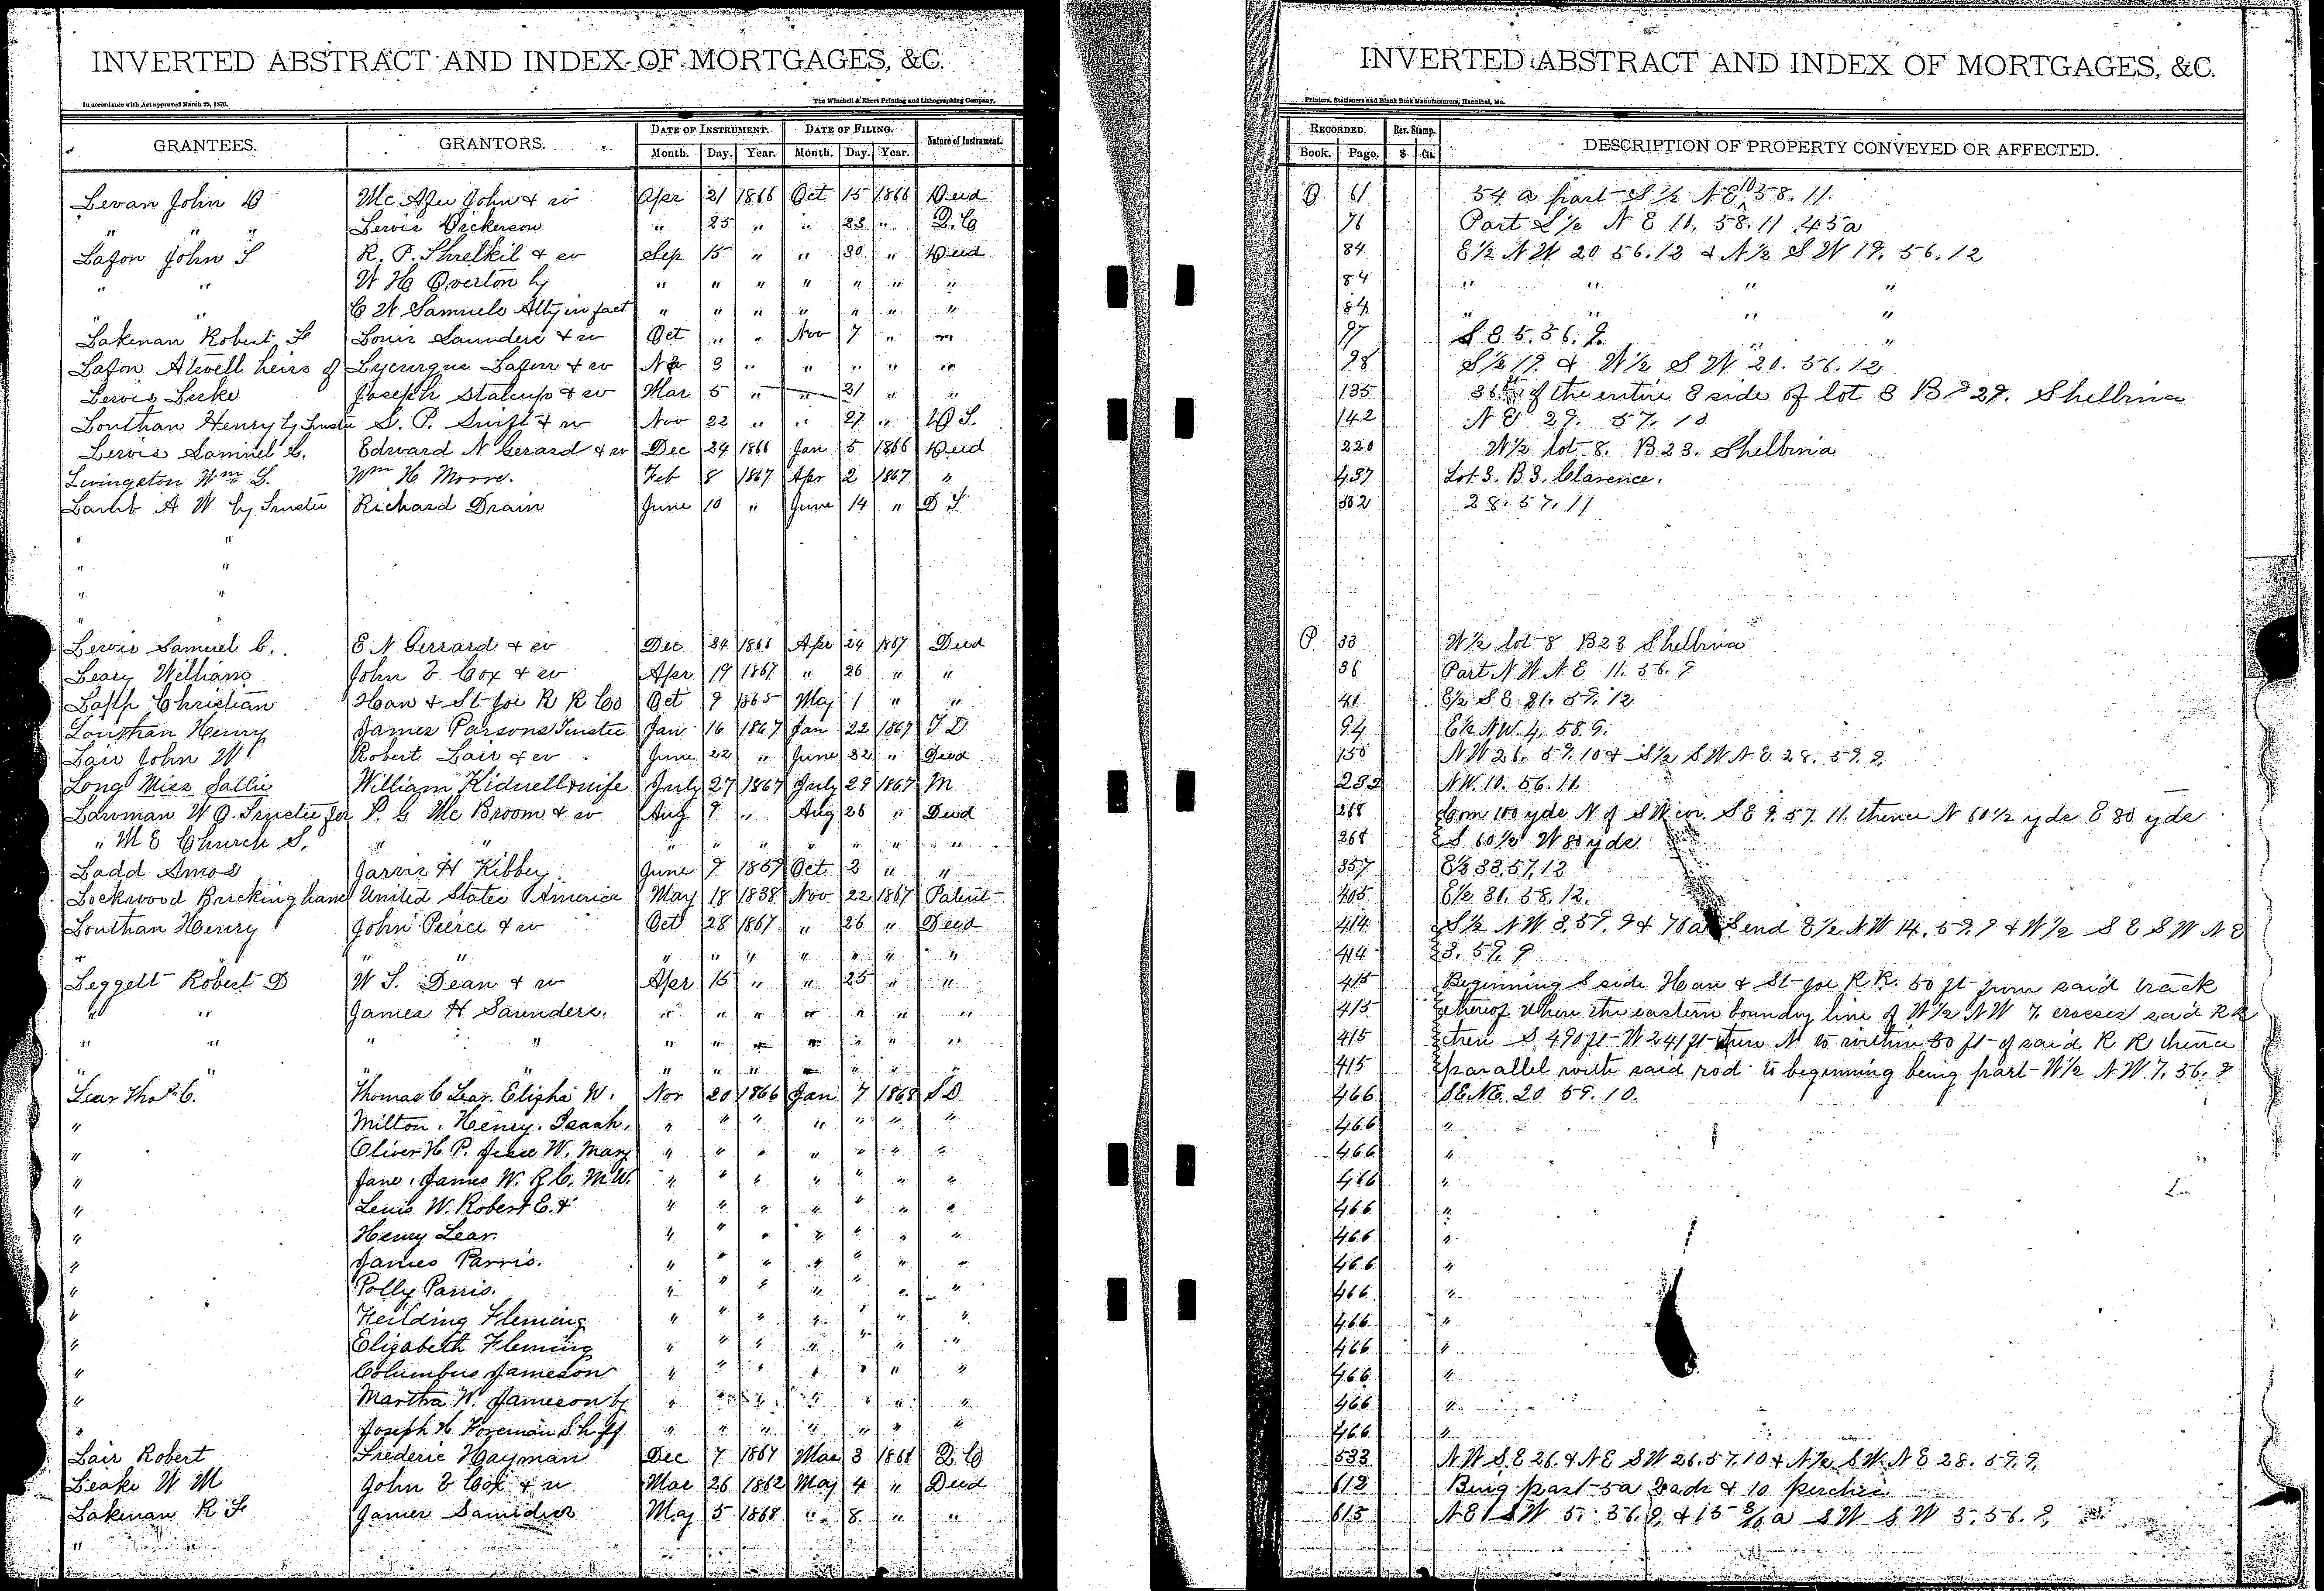 INVERTED ABSTRACT AND INDEX OF MORTGAGES, &C.
In accordance with Act approved March 25, 1870. The Winchell & Ebert Printing and Lithographing Company,
GRANTEES. GRANTORS. DATE OF INSTRUMENT. DATE OF FILING. Nature of Instrument.
Month. Day. Year. Month. Day. Year.
Levan John D Mc Afee John & w Apr 21 1866 Oct 15 1866 Deed
" " " Lewis Dickerson " 25 " " 23 " D.C
Lafon John S R. P. Shrelkil & w Sep 15 " " 30 " Deed
" " W H Overton by " " " " " " "
" " C W Samuels Atty in fact " " " " " " "
Lakenan Robert F Louis Saunders & w Oct " " Nov 7 " "
Lafon Atwell heirs of Lycurgus Lafon & w Nov 3 " " " " "
Lewis Leeke Joseph Stalcup & w Mar 5 " " 21 " "
Louthan Henry by Trustee S. P. Swift & w Nov 22 " " 27 "
Lewis Samuel C. Edward N Gerard & w Dec 24 1866 Jan 5 1866 Deed
Livingston Wm S. Wm H Morre. Feb 8 1867 Apr 2 1867 "
Lamb A W by Trustee Richard Drain June 10 " June 14 " D T
" "
" "
" "
"
Lewis Samuel C. E N Gerrard & w Dec 24 1866 Apr 24 1867 Deed
Leary William John E Cox & w Apr 19 1867 " 26 " "
Lapp Christian Han & St Joe R R Co Oct 9 1865 May 1 " "
Louthan Henry James Parsons Trustee Jan 16 1867 Jan 22 1867 T D
Lair John W Robert Lair & w June 22 " June 22 " Deed
Long Miss Sallie William Kidwell & wife July 27 1867 July 29 1867 M
Lawman W O. Trustee for P. G Mc Broom & w Aug 9 " Aug 26 " Deed
" M E Church S. " " " " " " " " "
Ladd Amos Jarvis H Kibbey June 7 1859 Oct 2 " "
Lockwood Buckingham United States America May 18 1838 Nov 22 1867 Patent
Louthan Henry John Pierce & w Oct 28 1867 " 26 " Deed
" " " " " " " " "
Leggett Robert D W S. Dean & w Apr 15 " " 25 " "
" " James H Saunders. " " " " " " "
" " " " " " " " " " "
" " " " " " " " " " "
Lear Thos C. Thomas C Lear. Elisha W. Nov 20 1866 Jan 7 1868 S D
" Milton. Henry. Isaah. " " " " " " "
" Oliver H P. Jesse W. Mary " " " " " " "
" Jane, James W. R C. M W. " " " " " " "
" Lewis W. Robert E. & " " " " " " "
" Henry Lear. " " " " " " "
" James Parris. " " " " " " "
" Polly Parris. " " " " " " "
" Heilding Fleming " " " " " " "
" Elizabeth Fleming " " " " " " "
" Columbus Jameson " " " " " " "
" Martha W. Jameson by " " " " " " "
" Joseph H Foreman Shff " " " " " " "
Lair Robert Frederic Hayman Dec 7 1867 Mar 3 1868 Q C
Leake W M John E Cox & w Mar 26 1862 May 4 " Deed
Lakenan R F James May 5 1868 " 8 " "
"
INVERTED ABSTRACT AND INDEX OF MORTGAGES, &C.
Printers, Stationers and Blank Book Manufacturers, Hannibal, Mo.
RECORDED. Rev. Stamp. DESCRIPTION OF PROPERTY CONVEYED OR AFFECTED.
Book. Page. $ Cts.
O 61 54 a part S ½ N E 10 58. 11.
76 Part S ½ N E 11. 58. 11 .45a
84 E½ N W 20 56. 12 & N ½ S W 19. 56. 12
84 " " " "
84 " " " "
97 S E 5. 56. 9. " "
98 S½ 19. & W½ S W 20. 56. 12
135 36 ft of the entire E side of lot 8 B 27. Shelbina
142 N E 29. 57. 10
220 W½ lot 8. B 23. Shelbina
487 Lot 3. B 3. Clarence.
562 28. 57. 11
P 33 W½ lot 8 B23 Shelbina
36 Part N W N E 11. 56. 9
41 E½ S E 21. 57. 12
94 E½ N W. 4. 58. 9.
150 N W 26. 57. 10 & S½ S W N E 28. 59. 9.
282 N W. 10. 56. 11.
268 Com 100 yds N of S W cor. S E 9. 57. 11. thence N 60½ yds E 80 yds
268 S 60½ W 80 yds
357 E½ 33. 57. 12
405 E½ 31. 58. 12.
414 S½ N W 3. 59. 9 & 76a S end E½ N W 14. 59. 9 & W½ S E S W N E
414 3. 59. 9
415 Beginning S side Han & St Joe R R. 50 ft from said track
415 thereof where the eastern boundry line of W½ N W 7. crosses said R R
415 then S 490 ft W 241 ft then N to within 50 ft of said R R thence
415 parallel with said rod to beginning being part W½ N W 7. 56. 9
466 S E. N E. 20 59. 10.
466 "
466 "
466 "
466 "
466 "
466 "
466 "
466 "
466 "
466 "
466 "
466 "
533 N W S E 26. & N E S W 26. 57. 10 & N½ S W. N E 28. 59. 9.
612 Being part 5a & 10 perches
615 N E S W 5. 56. 9 & 15 a S W S W 3. 56. 9